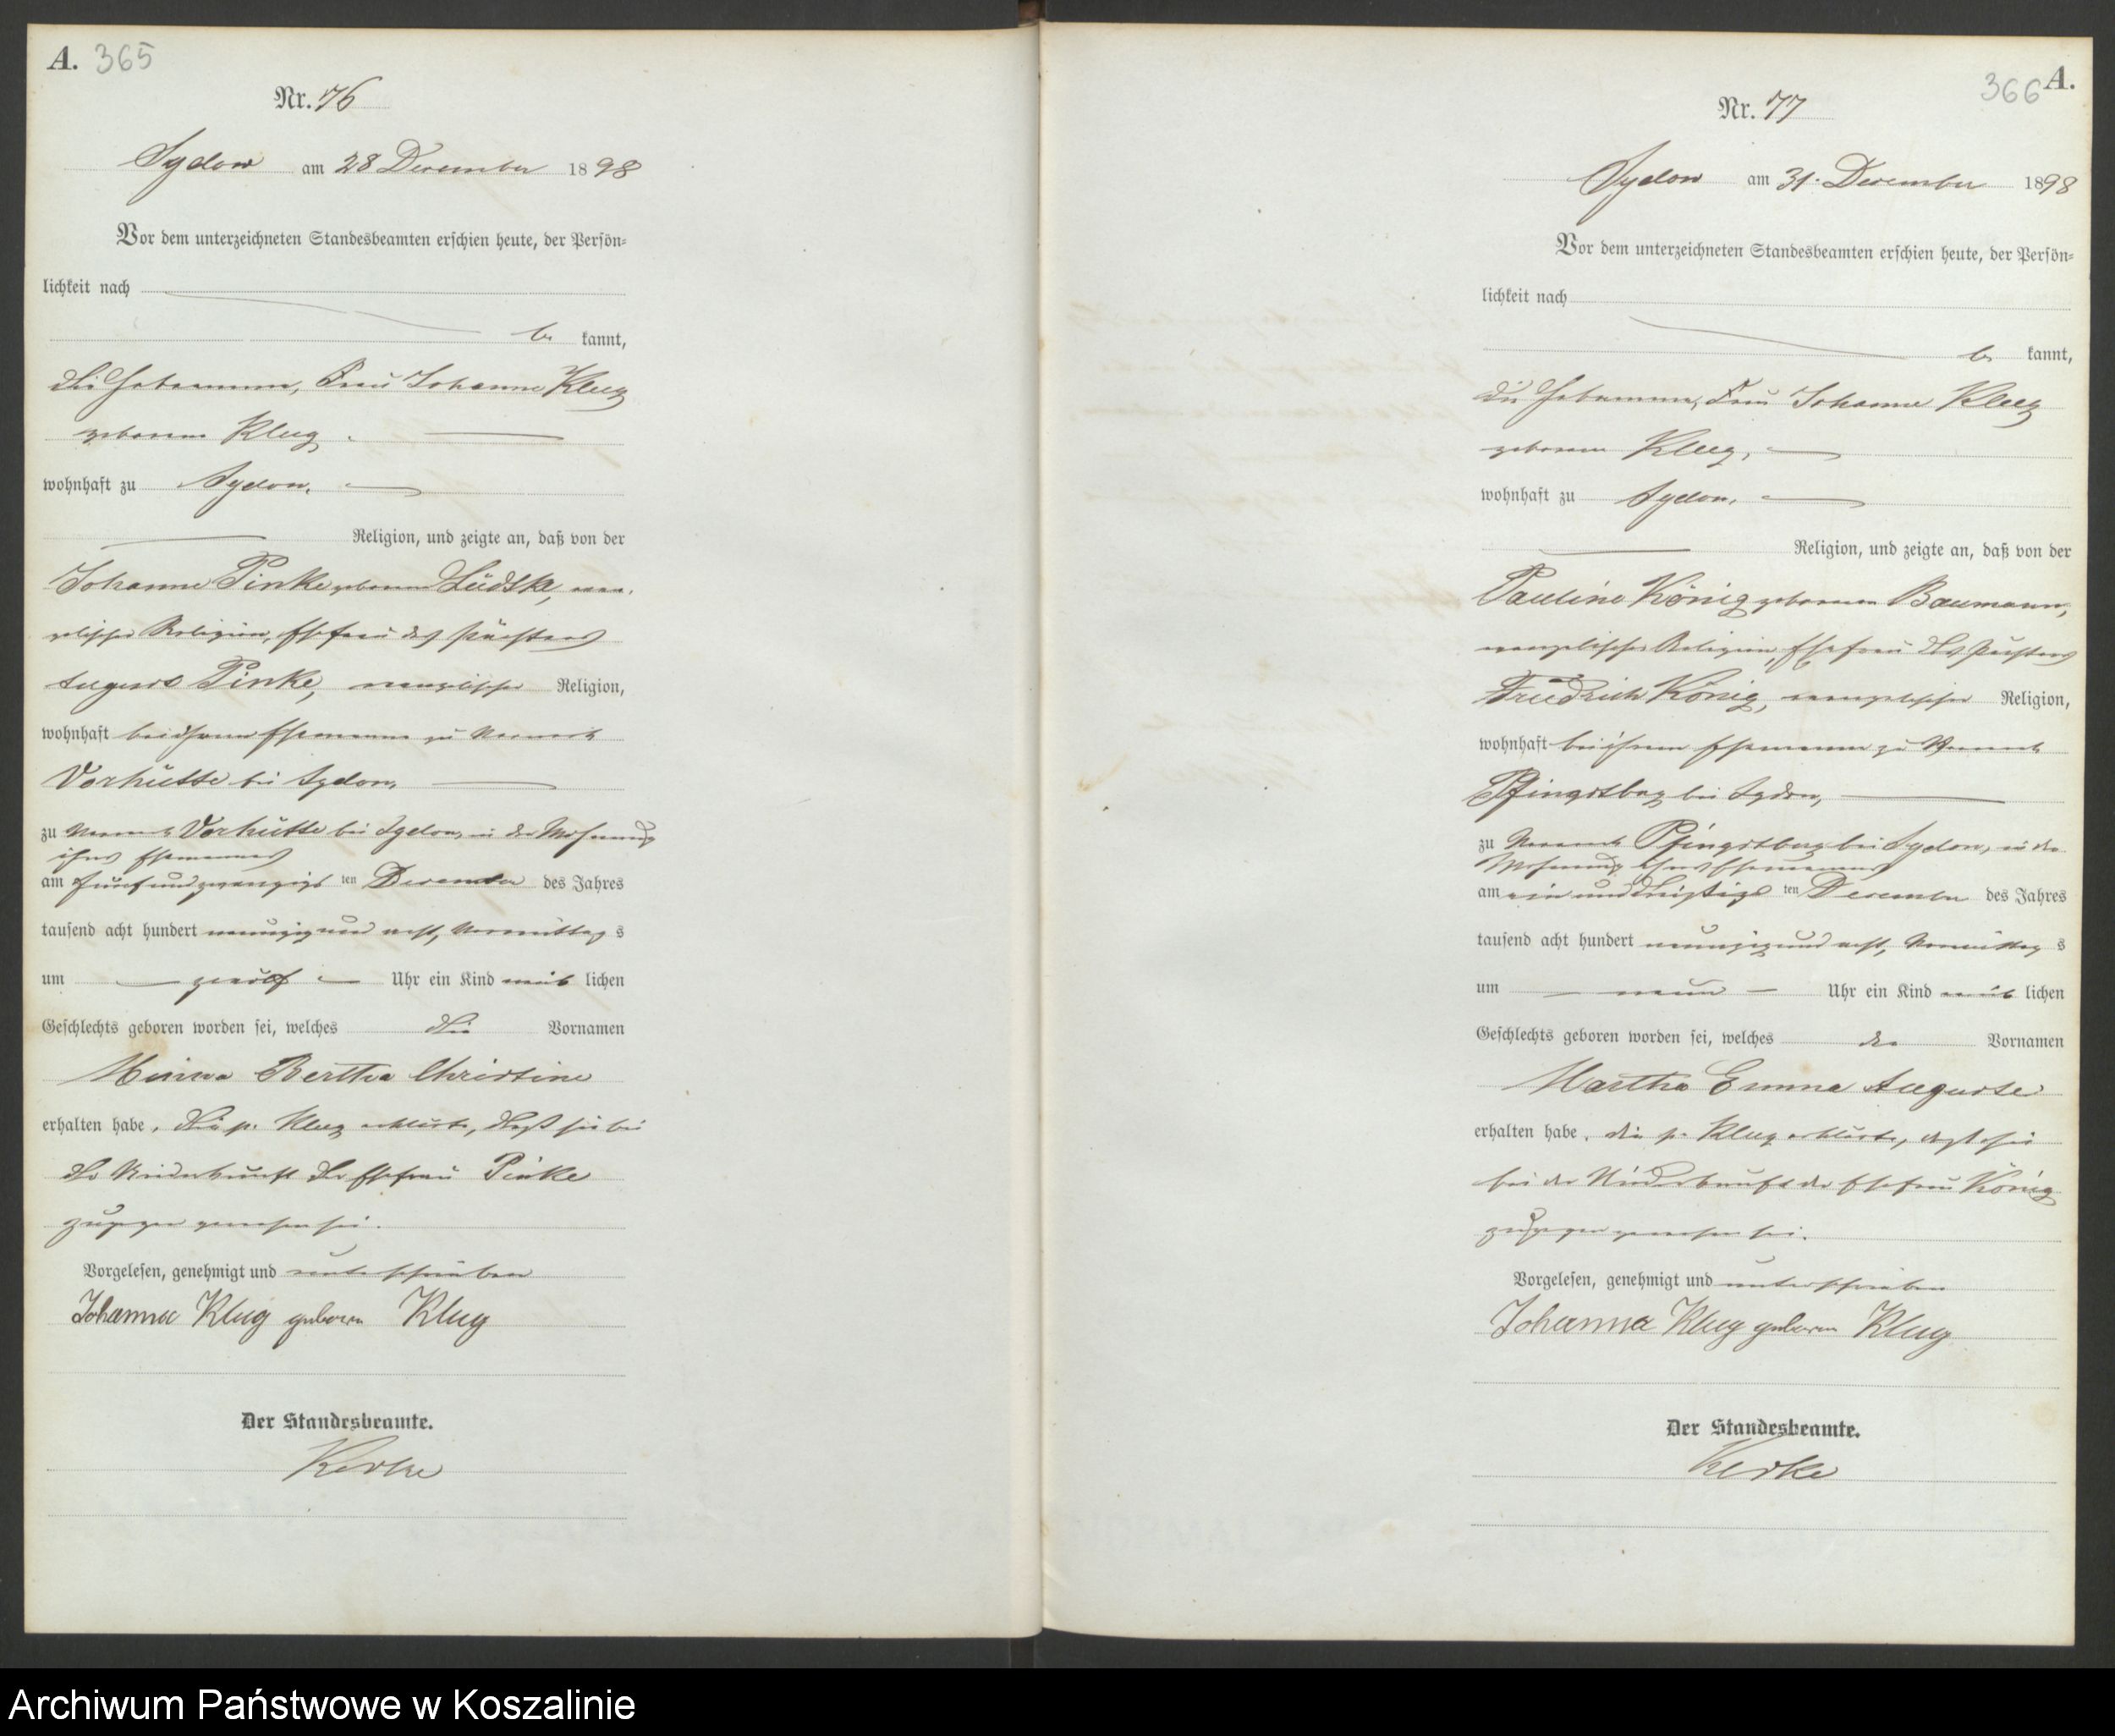 A. 365
Nr. 76
Sydow am 28 December 1898
Vor dem unterzeichneten Standesbeamten erschien heute, der Persön-
lichkeit nach
be kannt,
die Hebamme, Frau Johanne Klug
geborene Klug
wohnhaft zu Sydow,
Religion, und zeigte an, daß von der
Johanne Pinke geborene Lüdtke, evan-
gelischer Religion, Ehefrau des
August Pinke, evangelischer Religion,
wohnhaft bei ihrem Ehemanne zu Vorwerk
Vorhütte bei Sydow,
zu Vorwerk Vorhütte bei Sydow, in der Wohnung
ihres Ehemannes
am fünfundzwanzigsten December des Jahres
tausend acht hundert neunzig und acht, Vormittags
um zwölf Uhr ein Kind weib lichen
Geschlechts geboren worden sei, welches die Vornamen
Minna Bertha Christine
erhalten habe. Die p. Klug erklärte, daß sie bei
der Niederkunft der Ehefrau Pinke
zugegen gewesen sei.
Vorgelesen, genehmigt und unterschrieben
Johanna Klug geboren Klug
Der Standesbeamte.
366 A.
Nr. 77
Sydow am 31. December 1898
Vor dem unterzeichneten Standesbeamten erschien heute, der Persön-
lichkeit nach
be kannt,
die Hebamme, Frau Johanne Klug
geborene Klug,
wohnhaft zu Sydow,
Religion, und zeigte an, daß von der
Pauline König geborenen Baumann,
evangelischer Religion, Ehefrau des
Friedrich König, evangelischer Religion,
wohnhaft bei ihrem Ehemanne zu Vorwerk
Pfingstberg bei Sydow,
zu Vorwerk Pfingstberg bei Sydow, in der
Wohnung ihres Ehemannes
am ein und dreißigsten December des Jahres
tausend acht hundert neunzig und acht, Vormittags
um neun Uhr ein Kind weib lichen
Geschlechts geboren worden sei, welches die Vornamen
Martha Emma Auguste
erhalten habe. die p. Klug erklärte, daß sie
bei der Niederkunft der Ehefrau König
zugegen gewesen sei.
Vorgelesen, genehmigt und unterschrieben
Johanna Klug geboren Klug
Der Standesbeamte.
Archiwum Państwowe w Koszalinie